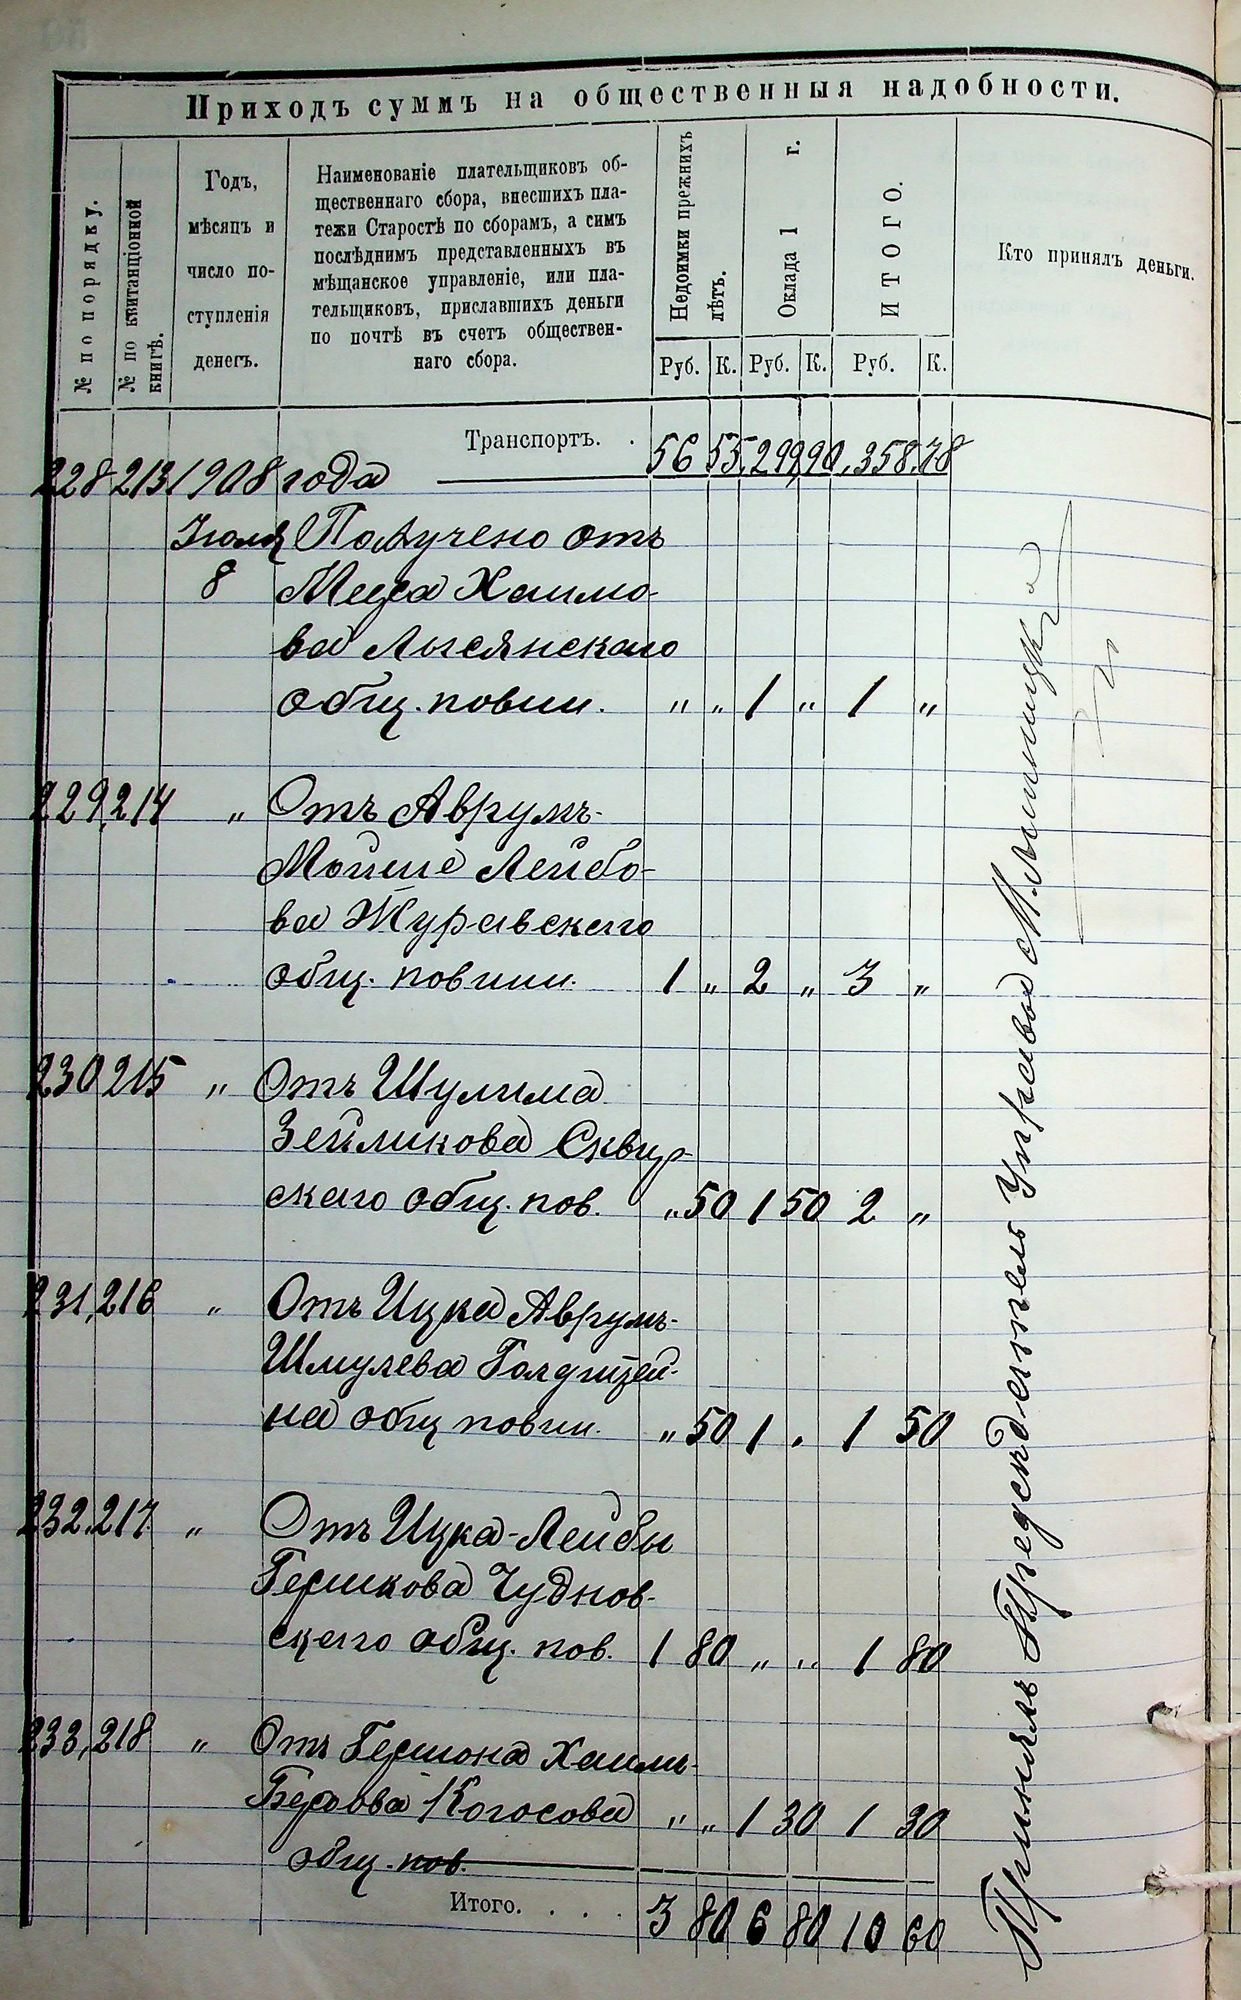 Приходъ суммъ на общественныя надобности.
№ по порядку.
№ по квитанціонной
книгѣ.
Годъ,
мѣсяцъ и
число по-
ступленія
денегъ.
Наименованіе плательщиковъ об-
щественнаго сбора, внесшихъ пла-
тежи Старостѣ по сборамъ, а симъ
послѣднимъ представленныхъ въ
мѣщанское управленіе, или пла-
тельщиковъ, приславшихъ деньги
по почтѣ въ счетъ обществен-
наго сбора.
Недоимки прежнихъ
лѣтъ.
Оклада 1 г.
ИТОГО.
Кто принялъ деньги.
Руб. К. Руб. К. Руб. К.
Транспортъ. . 56 55 299 90 358 78
228 213 1908 года
Іюля Получено отъ
8 Меера Хаимо-
ва Лысянскаго
общ. повин. " " 1 " 1 "
229 214 " Отъ Аврумъ-
Мойше Лейбо-
ва Журавскаго
общ. повин. 1 " 2 " 3 "
230 215 " Отъ Шулима
Зейликова Сквир-
скаго общ. пов. " 50 1 50 2 "
231 216 " Отъ Ицка Аврумъ-
Шмулева Голдштей-
на общ повин. " 50 1 " 1 50
232 217 " Отъ Ицка-Лейбы
Гершкова Чуднов-
скаго общ. пов. 1 80 " " 1 80
233 218 " Отъ Гершона Хаимъ-
Беркова Когосова " " 1 30 1 30
общ. пов.
Итого. . . . 3 80 6 80 10 60
Принялъ Председатель Управы М.